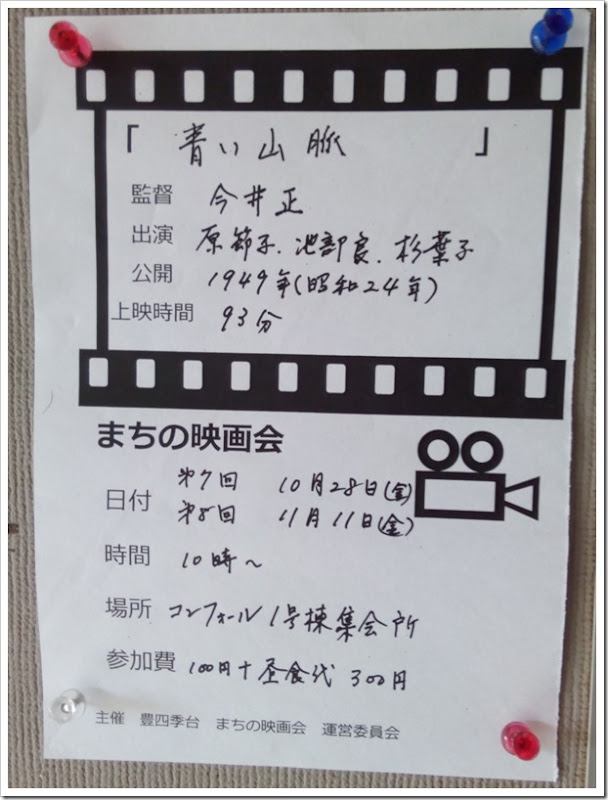 「 青い山脈 」
監督 今井正
出演 原節子、池部良、杉葉子
公開 1949年(昭和24年)
上映時間 93分
まちの映画会
日付 第7回 10月28日(金)
第8回 11月11日(金)
時間 10時～
場所 コンフォール1号棟集会所
参加費 100円+昼食代 300円
主催 豊四季台 まちの映画会 運営委員会